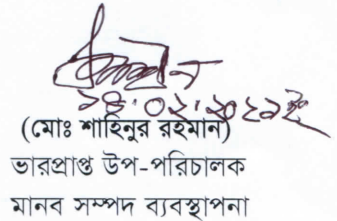 (মোঃ শাহিনুর রহমান)
ভারপ্রাপ্ত উপ-পরিচালক
মানব সম্পদ ব্যবস্থাপনা